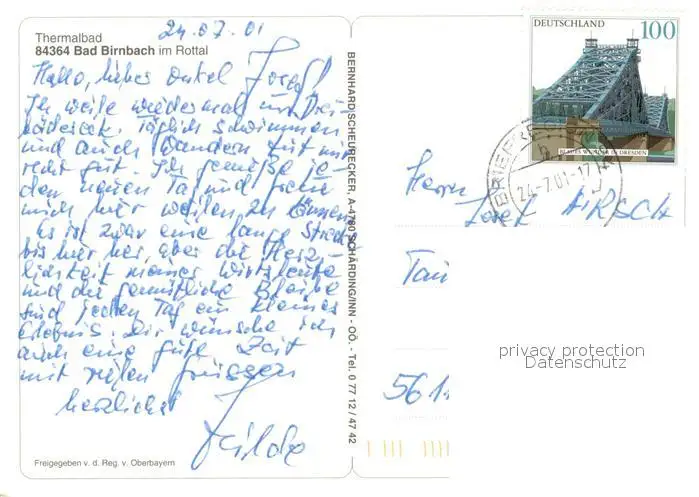 Thermalbad
84364 Bad Birnbach im Rottal
24.07.01
Hallo, lieber Onkel Josef!
Ich weile wieder mal im Drei-
bädereck. Täglich schwimmen
und auch wandern tut mir
recht gut. Ich genieße je-
den neuen Tag und freue
mich hier weilen zu können.
Es ist zwar eine lange Strecke
bis hier her, aber die Herz-
lichkeit meiner Wirtsleute
und die gemütliche Bleibe
sind jeden Tag ein kleines
Erlebnis. Dir wünsche ich
auch eine gute Zeit
mit vielen Grüssen
herzlichst
Freigegeben v. d. Reg. v. Oberbayern
BERNHARD SCHEURECKER, A-4780 SCHÄRDING/INN - OÖ. - Tel. 0 77 12 / 47 42
DEUTSCHLAND 100
BLAUES WUNDER DRESDEN
24.-7.01-17
Herrn
Josef HIRSCH
561
privacy protection
Datenschutz